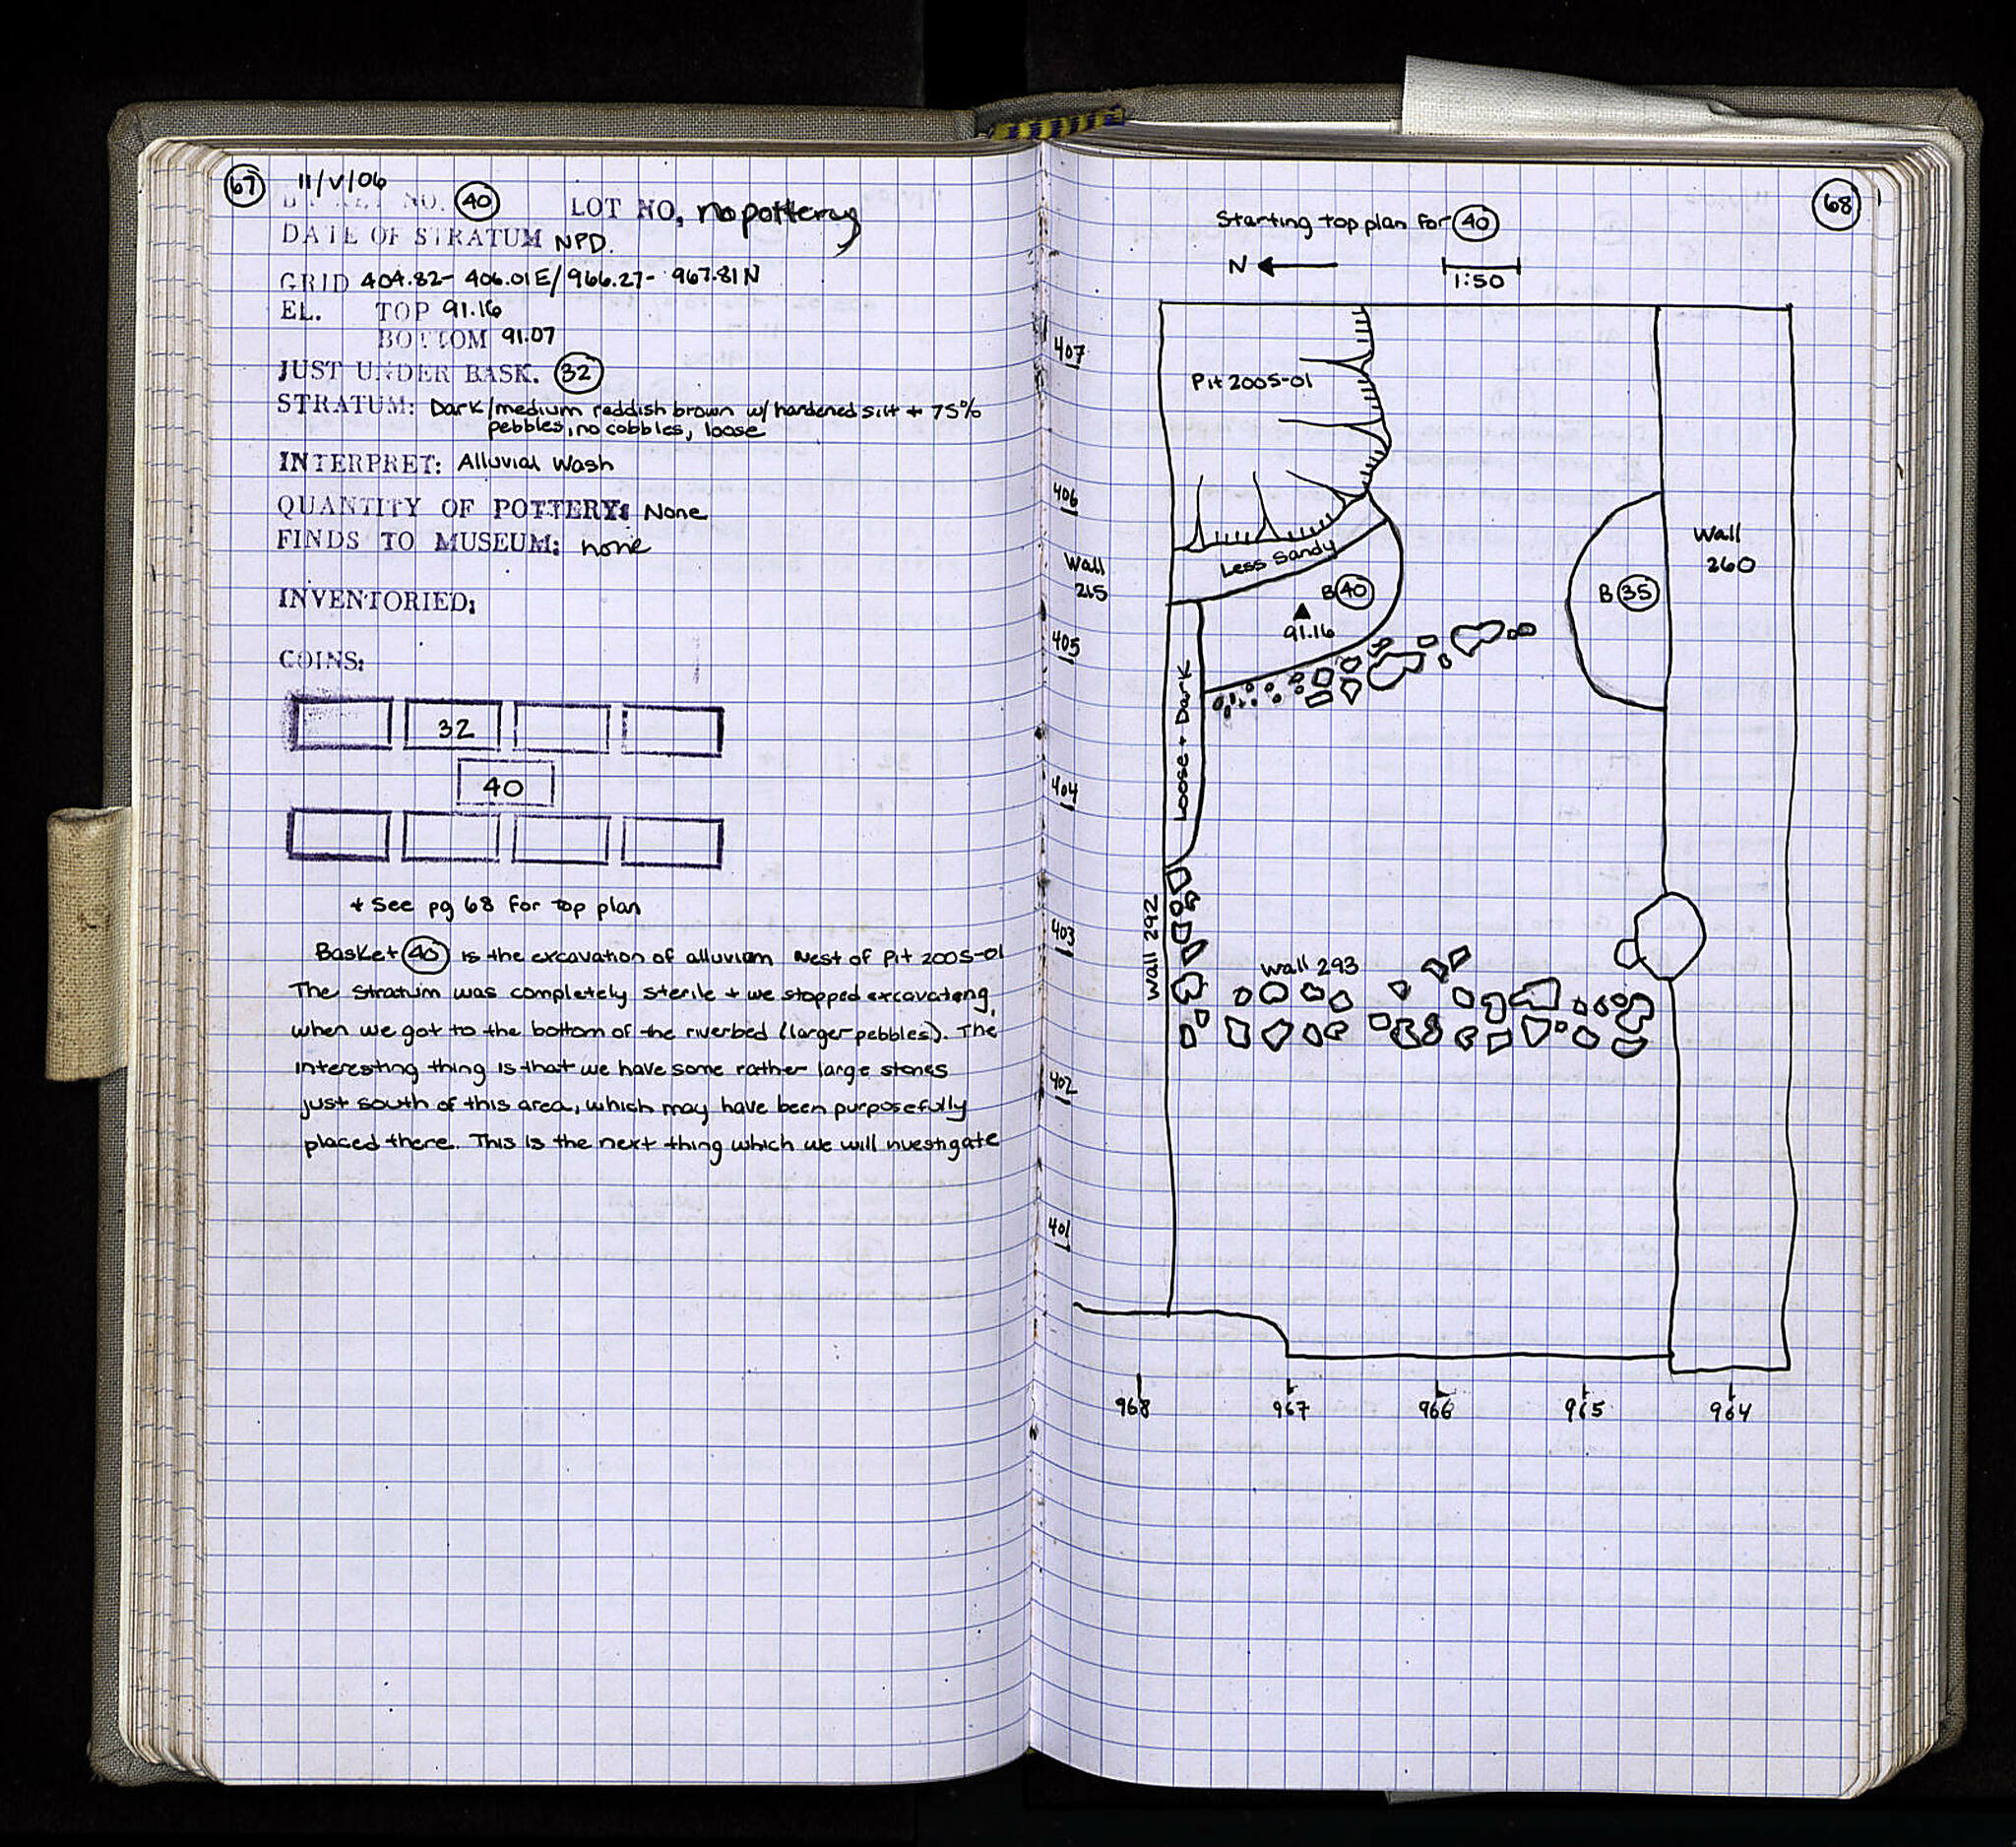 67
11/V/06
BASKET NO. 40 LOT NO, no pottery
DATE OF STRATUM NPD.
GRID 404.82- 406.01E/ 966.27- 967.81N
EL. TOP 91.16
BOTTOM 91.07
JUST UNDER BASK. 32
STRATUM: Dark/medium reddish brown w/ hardened silt + 75%
pebbles, no cobbles, loose
INTERPRET: Alluvial Wash
QUANTITY OF POTTERY: None
FINDS TO MUSEUM: none
INVENTORIED:
COINS:
32
40
* See pg 68 for top plan
Basket 40 is the excavation of alluviam west of Pit 2005-01
The stratum was completely sterile + we stopped excavateng,
when we got to the bottom of the riverbed (larger pebbles). The
interesting thing is that we have some rather large stones
just south of this area, which may have been purposefully
placed there. This is the next thing which we will nvestigate
68
Starting top plan for 40
N
1:50
407
Pit 2005-01
406
Less Sandy
Wall
260
Wall
215
B 40
B 35
91.16
405
Loose + Dark
404
Wall 292
403
Wall 293
402
401
968 967 966 965 964